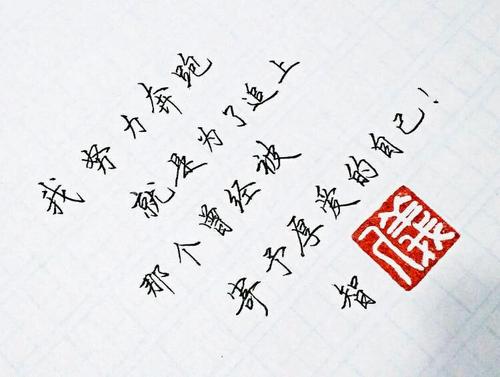 我努力奔跑
就是为了追上
那个曾经被
寄予厚爱的自己！
智